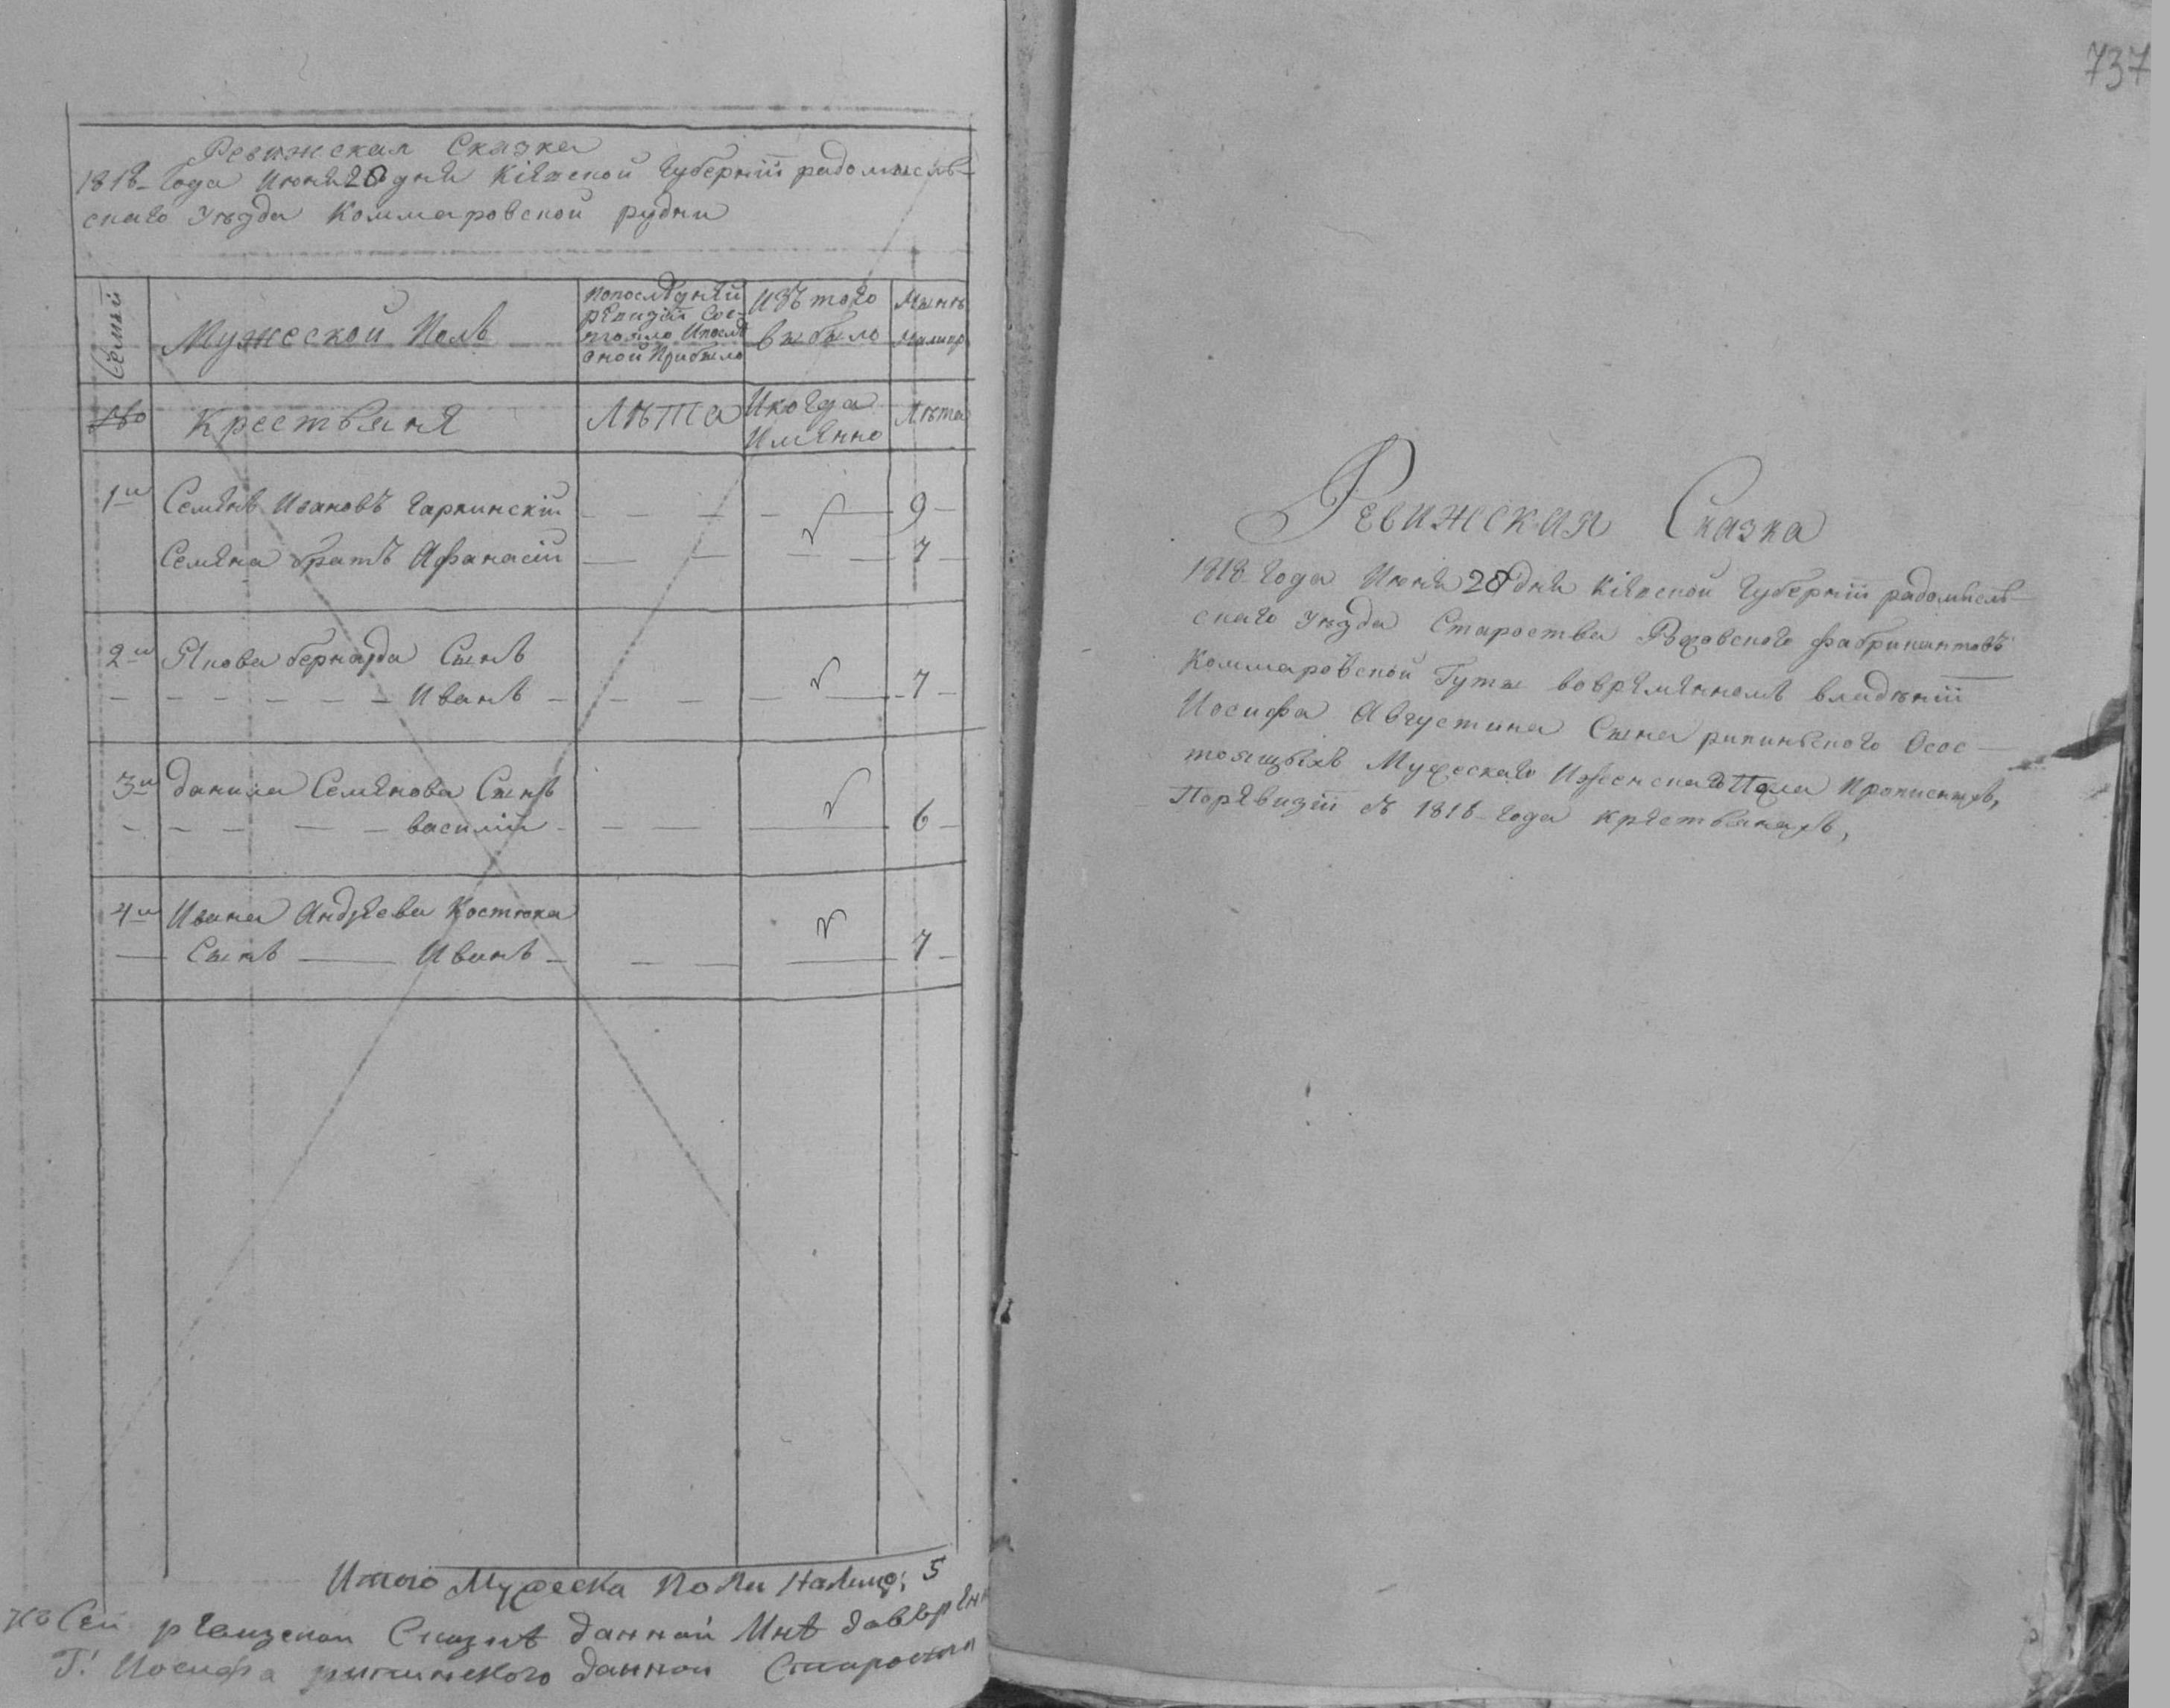 Ревижская Сказка
1818 года Июня 20 дня Кіевской Губерніи радомысль-
скаго Уѣзда Коммаровской рудни
Семьи
Мужеской Полъ
попослѣдней
ревизіи Сос-
тояло Ипослѣ
оной Прибыло
Изъ того
выбыло
Нынѣ
налицо
№
Крестьяня
Лѣта
Икогда
Имянно
Лѣта
1-и Семенъ Ивановъ Гарпинскій 9
Семена братъ Афанасій 7
2-и Якова бернарда Сынъ
Иванъ 7
3-и данила Семенова Сынъ
василій 6
4-и Ивана Андреева Костюка
Сынъ Иванъ 7
Итого Мужеска Пола Налицо; 5
Ко Сей ревизской Сказкѣ данной Мнѣ довѣрен
Г: Иосифа рипинского данной
737
Ревижская Сказка
1818 года Июня 28 дня Кіевской Губерніи радомысль-
скаго Уѣзда Староства Фабрикантовъ
Коммаровской Гуты вовременномъ владѣніи
Иосифа Августина Сына рипинского Осос-
тоящыхъ Мужескаго Иженскаго Пола Прописныхъ,
Поревизіи съ 1816 года крестьянахъ,